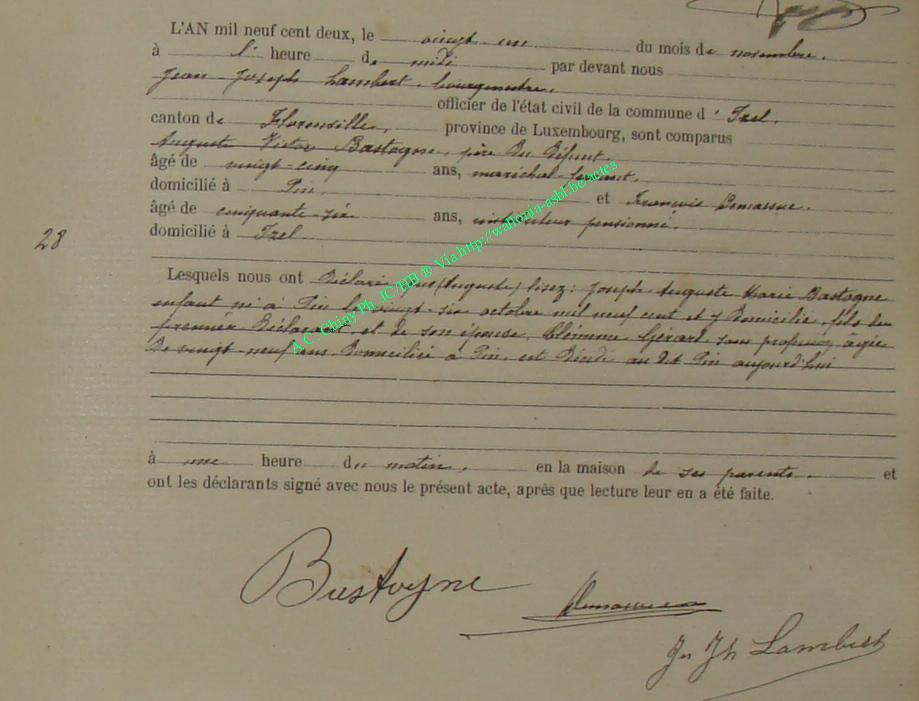 L'AN mil neuf cent deux, le vingt-un du mois de novembre.
à l' heure de midi par devant nous
Jean-Joseph Lambert, bourgmestre,
officier de l'état civil de la commune d'Izel,
canton de Florenville, province de Luxembourg, sont comparus
Auguste Victor Bastogne, père du défunt,
âgé de vingt-cinq ans, maréchal-ferrant,
domicilié à Pin et François
âgé de cinquante-six ans, instituteur pensionné,
domicilié à Izel
28
Lesquels nous ont déclaré que (Auguste) lisez: Joseph-Auguste Marie Bastogne
enfant né à Pin le vingt-six octobre mil neuf cent et y domicilié, fils du
premier déclarant et de son épouse, Clémence Gérard, sans profession, agée
de vingt-neuf ans, domiciliée à Pin, est décédé au dit Pin aujourd'hui
à une heure du matin, en la maison de ses parents. et
ont les déclarants signé avec nous le présent acte, après que lecture leur en a été faite.
Bastogne
Jn Jh Lambert
A.C. Chiny Ph. JC/HB ® Via http://wallonia-asbl.be/actes